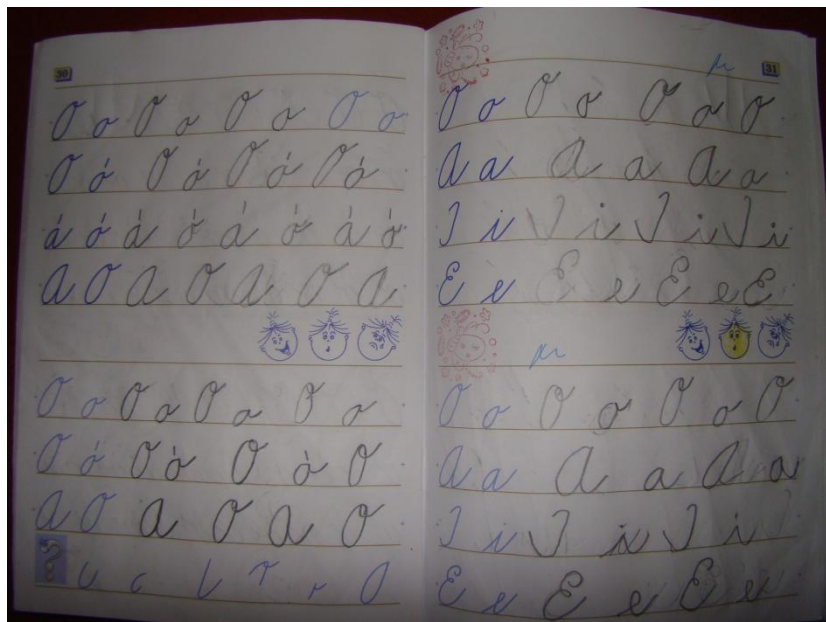 30
O o O o O o O o
O ó O ó O ó O ó
á ó á ó á ó á ó
A O A O A O A
O o O o O o O o
O ó O ó O ó O
A O A O A O
31
O o O o O o O
A a A a A a
I i I i I i I i
E e E e E e E
O o O o O o O
A a A a A a
I i I i I i
E e E e E e